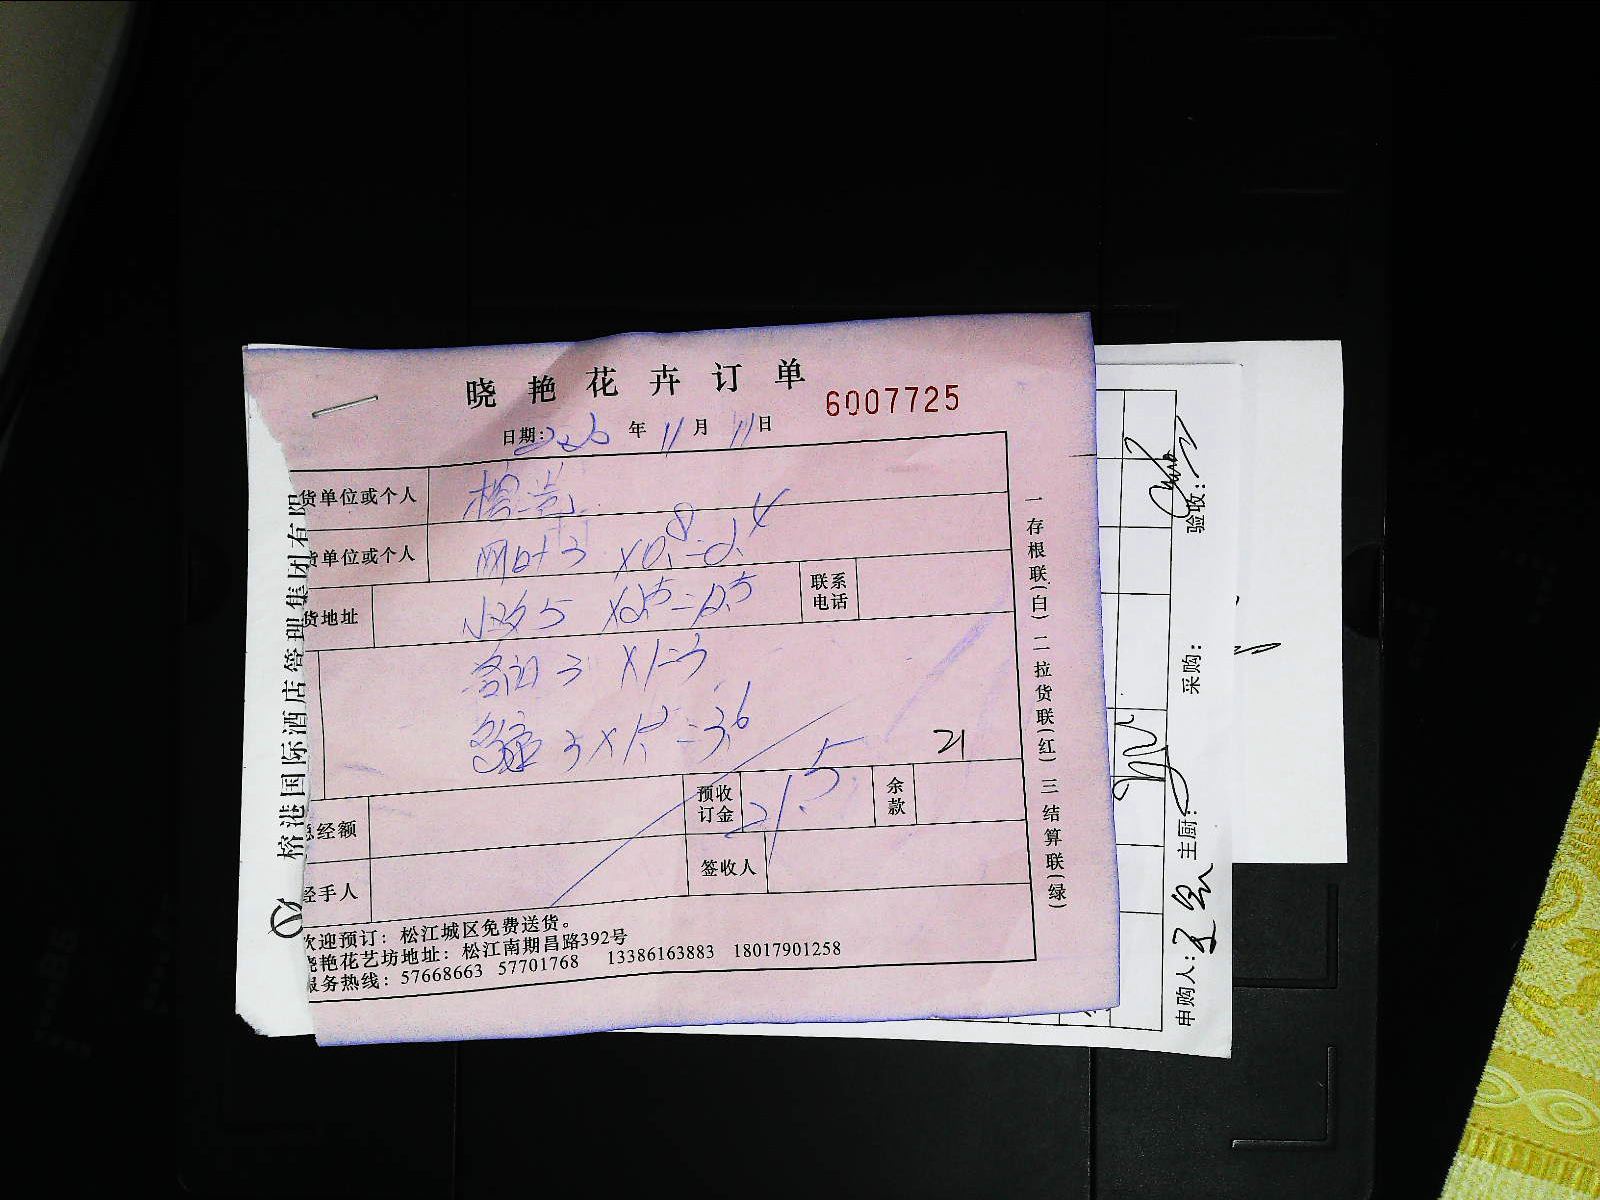 晓艳花卉订单
6007725
日期: 年 11 月 11 日
货单位或个人 榕港
货单位或个人 网叶 3 X0.8=2.4
货地址 5 X2.5=12.5 联系电话
3 X1=3
3 X1.2=3.6
21
总经额 预收订金 21.5 余款
经手人 签收人
欢迎预订：松江城区免费送货。
晓艳花艺坊地址：松江南期昌路392号
服务热线：57668663 57701768 13386163883 18017901258
一存根联(白) 二拉货联(红) 三结算联(绿)
榕港国际酒店管理集团有限
申购人: 主厨: 采购: 验收: